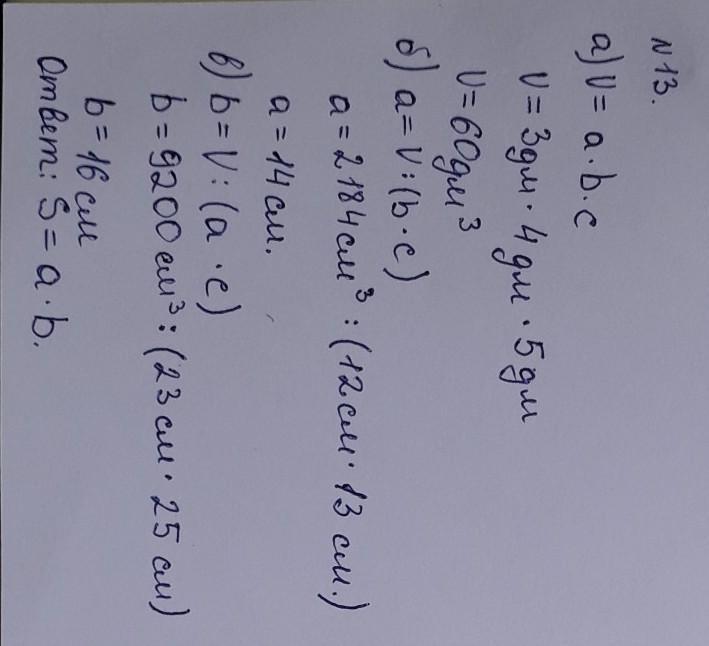 N13.
а) V = a · b · c
V = 3дм · 4дм · 5дм
V = 60дм³
б) a = V : (b · c)
a = 2184см³ : (12см · 13 см.)
a = 14 см.
в) b = V : (a · c)
b = 9200 см³ : (23 см · 25 см)
b = 16 см
Ответ: S = a · b.